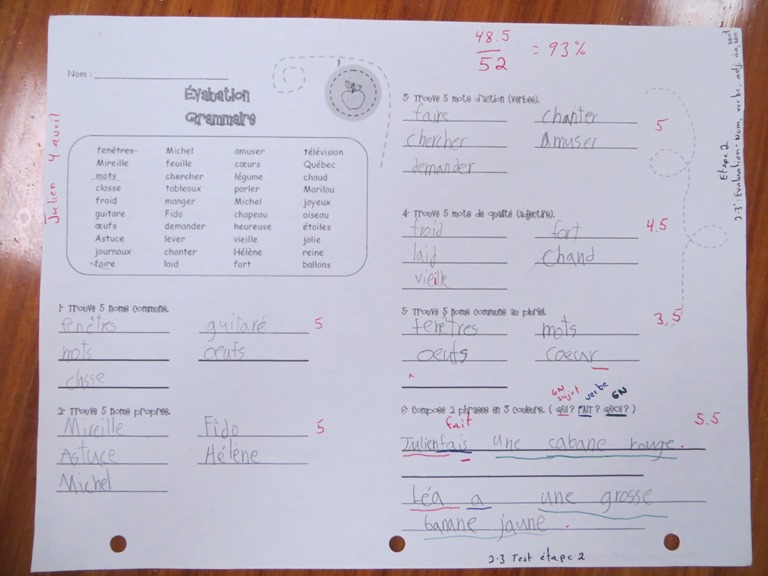 48.5
52
= 93%
Nom :
Évaluation
Grammaire
Julien 4 avril
fenêtres Michel amuser télévision
Mireille feuille cœurs Québec
mots chercher légume chaud
classe tableaux parler Marilou
froid manger Michel joyeux
guitare Fido chapeau oiseau
œufs demander heureuse étoiles
Astuce lever vieille jolie
journaux chanter Hélène reine
faire laid fort ballons
1- Trouve 5 noms communs.
fenêtres guitare 5
mots œufs
classe
2- Trouve 5 noms propres.
Mireille Fido 5
Astuce Hélène
Michel
3- Trouve 5 mots d'action (verbes).
faire chanter 5
chercher amuser
demander
4- Trouve 5 mots de qualité (adjectifs).
froid fort 4.5
laid chand
vieille
5- Trouve 5 noms communs au pluriel.
fenêtres mots 3.5
œufs coeur
6- Compose 2 phrases en 3 couleurs. ( QUI? FAIT? QUOI? )
GN sujet verbe GN
5.5
fait
Julien fais une cabane rouge.
Léa a une grosse
banane jaune.
2.3 Test étape 2
Étape 2
2.3: Évaluation: Nom, verbe, adj.